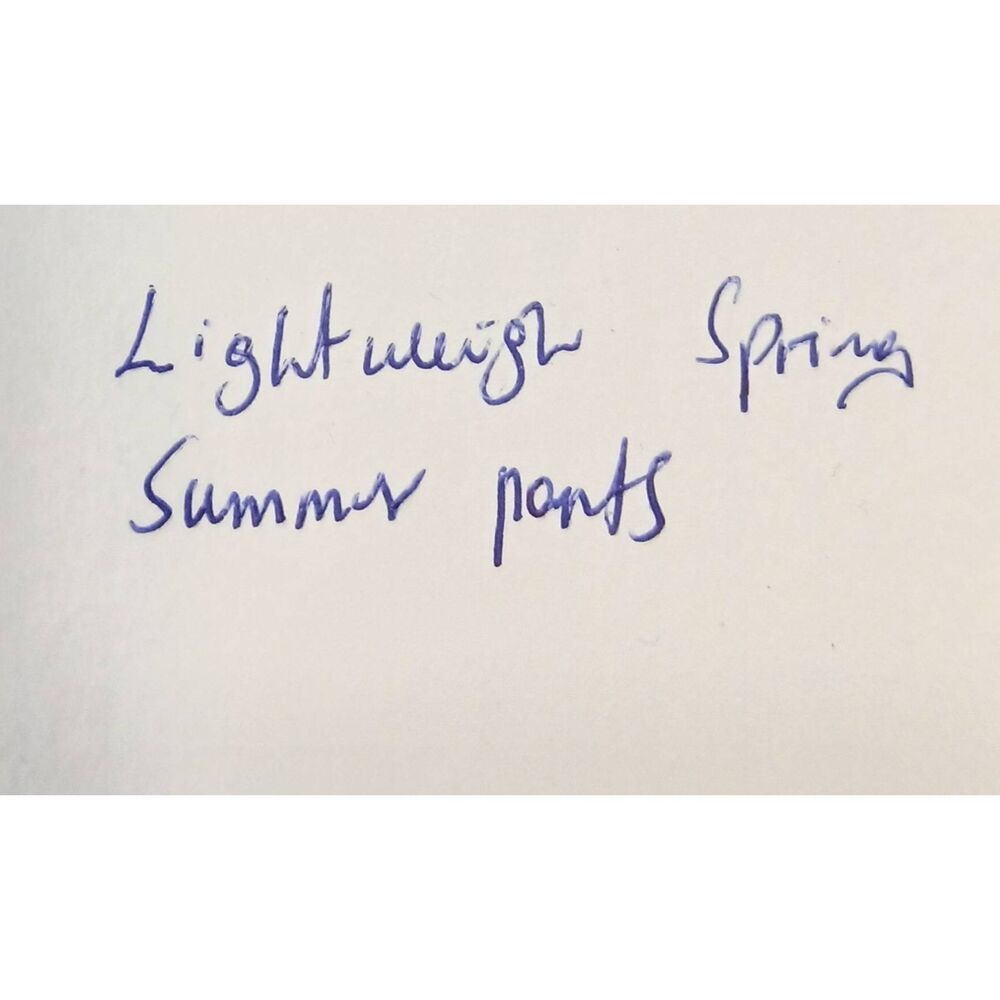 Lightweigh Spring
Summer pants